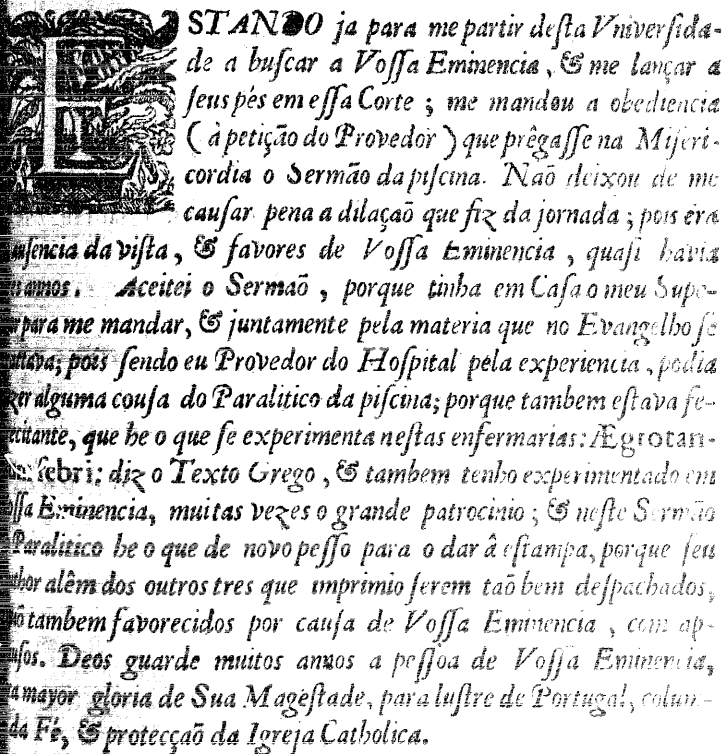 ESTANDO ja para me partir desta Vniversida-
de a buscar a Vossa Eminencia, & me lançar a
seus pés em essa Corte ; me mandou a obediencia
( à petição do Provedor ) que prêgasse na Miseri-
cordia o Sermão da piscina. Naõ deixou de me
causar pena a dilaçaõ que fiz da jornada ; pois era
ausencia da vista, & favores de Vossa Eminencia, quasi havia
annos. Aceitei o Sermaõ, porque tinha em Casa o meu Supe-
para me mandar, & juntamente pela materia que no Evangelho se
tratava; pois sendo eu Provedor do Hospital pela experiencia, podia
alguma cousa do Paralitico da piscina; porque tambem estava fe-
, que he o que se experimenta nestas enfermarias: Ægrotan-
febri: diz o Texto Grego, & tambem tenho experimentado em
Vossa Eminencia, muitas vezes o grande patrocinio ; & neste Sermão
Paralitico he o que de novo pesso para o dar â estampa, porque seu
Author alêm dos outros tres que imprimio serem taõ bem despachados,
tambem favorecidos por causa de Vossa Eminencia, com ap-
. Deos guarde muitos annos a pessoa de Vossa Eminencia,
mayor gloria de Sua Magestade, para lustre de Portugal, colum-
da Fé, & protecçaõ da Igreja Catholica.